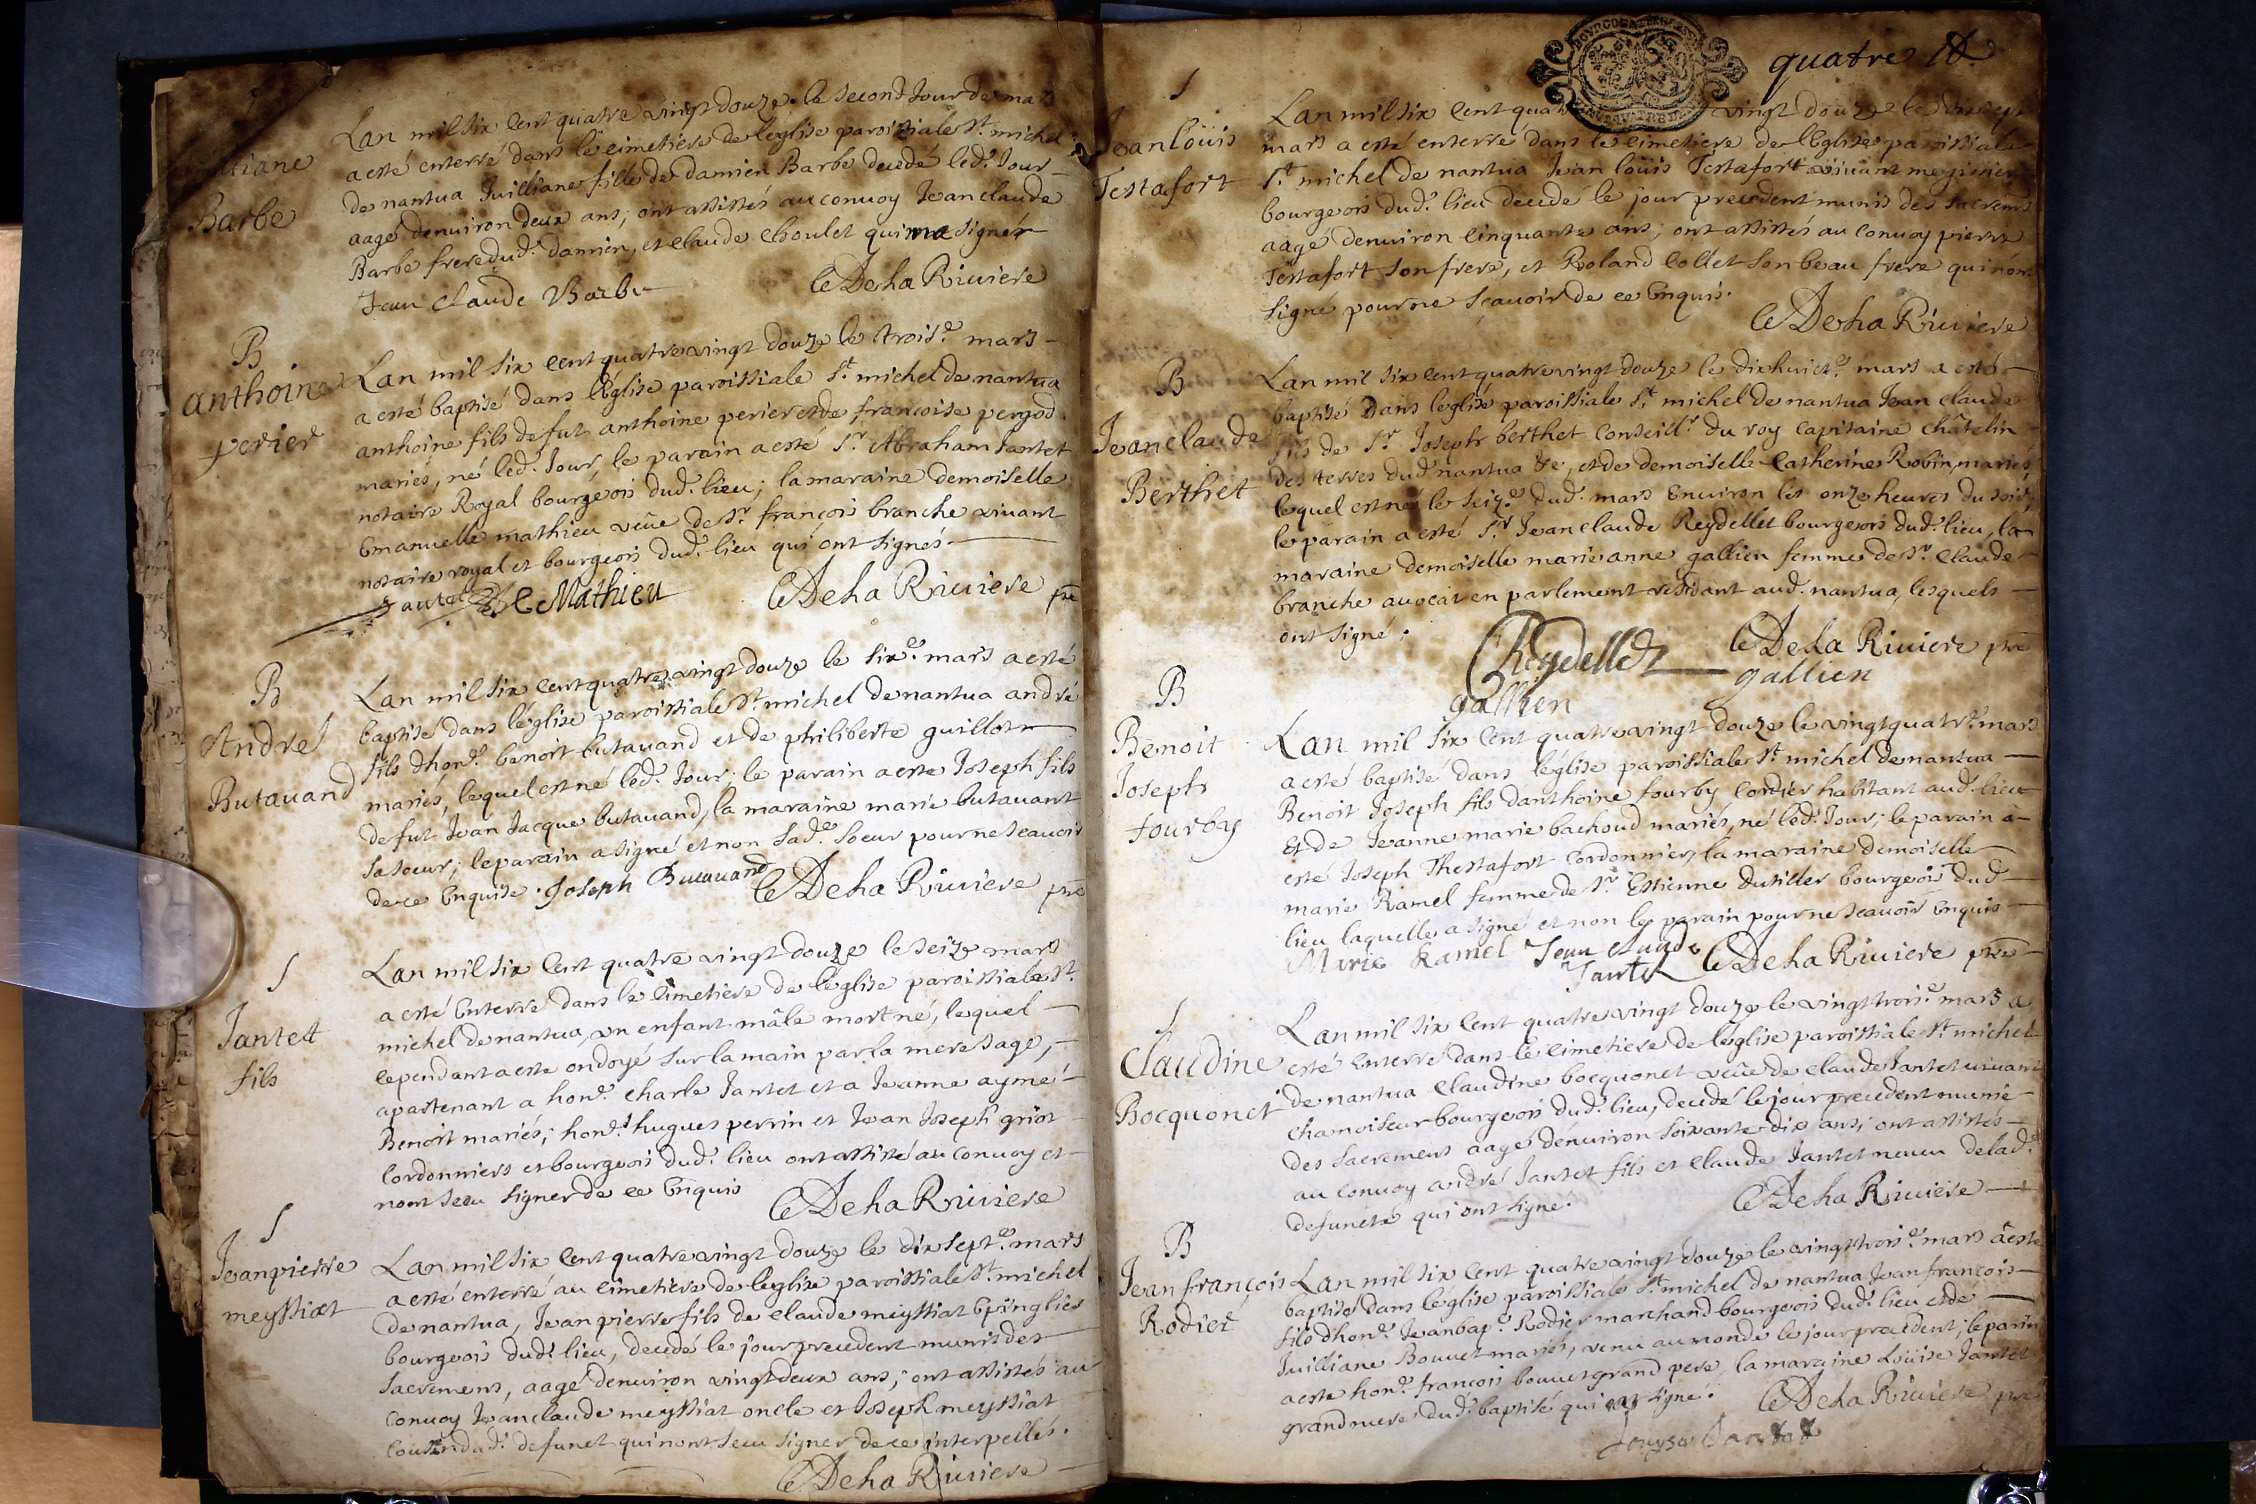 Barbe
Lan mil six cent quatre vingt douze le second Jour de mars
a esté enterré dans le cimetiére de leglise paroissiale St michel
de nantua Juilliane fille de damien Barbe decedé led. Jour
aagé denuiron deux ans, ont assistés au conuoy Jean claude
Barbe frere dud. damien, et claude choulet qui signér
Jean claude Barbe
CDelaRiuiere
B
anthoine
perier
Lan mil six cent quatre vingt douze le trois.e mars
a esté baptisé dans léglise paroissiale St. michel de nantua
anthoine fils de fut anthoine perier et de francoise pergod
mariés, né led. Jour, le parain a esté Sr. Abraham Jantet
notaire Royal bourgeois dud. lieu; la maraine demoiselle
Emanuelle mathieu veüe de Sr. françois branche viuant
notaire royal et bourgeois dud. lieu qui ont signés.
Jantet
E Mathieu
CDelaRiuiere ptre
B
André
Butauand
Lan mil six cent quatre vingt douze le six.e mars a esté
baptisé dans léglise paroissiale St. michel de nantua andré
fils dhon.e benoit butauand et de philiberte guillot
mariés, lequel est né led. Jour; le parain a este Joseph fils
de fut Jean Jacque butauand, la maraine marie butauant
sa soeur; le parain a signé et non sad.e soeur pour ne scauoir
de ce Enquise. Joseph Butauand
CDelaRiuiere ptre
S
Jantet
fils
Lan mil six cent quatre vingt douze le seize mars
a esté Enterré dans le Cimetiere de léglise paroissiale St.
michel de nantua, un enfant mâle mort né, lequel
cependant a esté ondoyé sur la main par la mere sage,
apartenant a hon.e charle Jantet et a Jeanne aymé
Benoit mariés; hon.s hugues perrin et Jean Joseph griot
Cordonniers et bourgeois dud. lieu ont assisté au conuoy et
nont sceu signer de ce Enquis
CDelaRiuiere
S
Jeanpierre
meyssiat
Lan mil six cent quatre vingt douze le dix sept.e mars
a esté enterré au cimetiere de leglise paroissiale St. michel
de nantua, Jean pierre fils de claude meyssiat Epinglier
bourgeois dud. lieu, decedé le jour precedent munis des
sacremens, aagé denuiron vingt deux ans; ont assistés au
conuoy Jean claude meyssiat oncle et Joseph meyssiat
cousin dud. defunct qui nont sceu signer de ce interpellés.
CDelaRiuiere
quatre
S
Jean loüis
Testafort
Lan mil six cent quatre vingt douze le
mars a esté enterré dans le cimetiere de lEglise paroissiale
St. michel de nantua Jean loüis Testafort viuant megissier
bourgeois dud. lieu decedé le jour precedent munis des sacremts
aagé denuiron cinquante ans; ont assistés au conuoy pierre
Testafort son frere, et Roland Collet son beau frere qui nont
signé pour ne scauoir de ce Enquis.
CDelaRiuiere
B
Jean claude
Berthet
Lan mil six cent quatre vingt douze le dix huict.e mars a esté
baptisé dans léglise paroissiale St. michel de nantua Jean claude
fils de Sr. Joseph berthet Conseillr. du roy Capitaine châtelin
des terres dud. nantua &c, et de demoiselle Catherine Robin, mariés
lequel est né le seiz.e dud. mars Enuiron les onze heures du soir,
le parain a esté Sr. Jean claude Reydellet bourgeois dud. lieu, la
maraine demoiselle marie anne gallien femme de Sr. Claude
branche auocat en parlement residant aud. nantua, lesquels
ont signé.
Reydellet
CDelaRiuiere ptre
gallien
gallien
B
Benoit
Joseph
fourby
Lan mil six cent quatre vingt douze le vingt quatr.e mars
a esté baptisé dans léglise paroissiale St. michel de nantua
Benoit Joseph fils danthoine fourby Cordier habitant aud. lieu
et de Jeanne marie bachoud mariés, né led. Jour; le parain a
esté Joseph Thestafort Cordonnier, la maraine demoiselle
marie Ramel femme de Sr. Estienne Dutiller bourgeois dud.
lieu laquelle a signé et non le parain pour ne scauoir Enquis
Marie Ramel Jean claude
Jantet CDelaRiuiere ptre
S
Claudine
Bocquonet
Lan mil six cent quatre vingt douze le vingt trois.e mars a
esté Enterré dans le cimetiere de léglise paroissiale St. michel
de nantua Claudine bocquonet veüe de Claude Jantet viuant
chamoiseur bourgeois dud. lieu, decedé le jour precedent munie
des sacrements aagé denuiron soixante dix ans; ont assistés
au conuoy andré Jantet fils et Claude Jantet neueu de lad.
defuncte qui ont signé.
CDelaRiuiere
B
Jean françois
Rodiet
Lan mil six cent quatre vingt douze le vingt trois.e mars a este
baptisé dans léglise paroissiale St. michel de nantua Jean francois
fils dhon.e Jean bap.e Rodier marchand bourgeois dud. lieu et de
Juilliane Bouuet mariés, venu au monde le jour precedent; le parin
a esté hon.e francois bouuet grand pere, la maraine Loüise Jantet
grandmere dud. baptisé qui ont signé.
CDelaRiuiere ptre